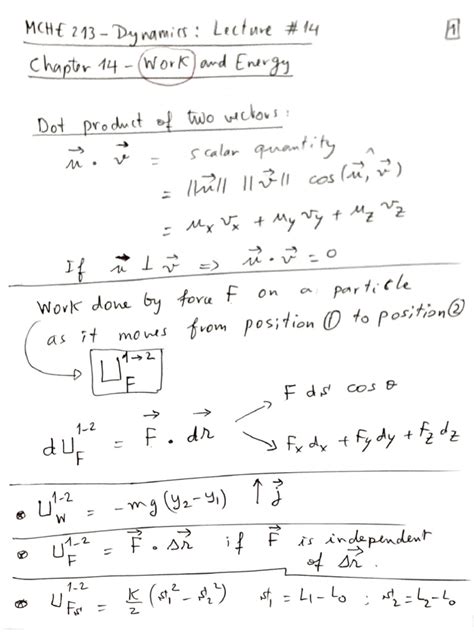 MCHE 213 - Dynamics: Lecture #14
1
Chapter 14 - Work and Energy
Dot product of two vectors:
u⃗ · v⃗ = scalar quantity
= ||u⃗|| ||v⃗|| cos(u⃗, v⃗)
= u_x v_x + u_y v_y + u_z v_z
If u⃗ ⊥ v⃗ ⇒ u⃗ · v⃗ = 0
Work done by force F on a particle
as it moves from position ① to position ②
U_F^{1→2}
F ds cos θ
dU_F^{1-2} = F⃗ · dr⃗
F_x dx + F_y dy + F_z dz
• U_W^{1-2} = -mg(y₂-y₁) ↑ j⃗
• U_F^{1-2} = F⃗ · Δr⃗ if F⃗ is independent
of Δr⃗.
• U_{Fs}^{1-2} = K/2 (s₁² - s₂²) s₁ = L₁-L₀ ; s₂ = L₂-L₀